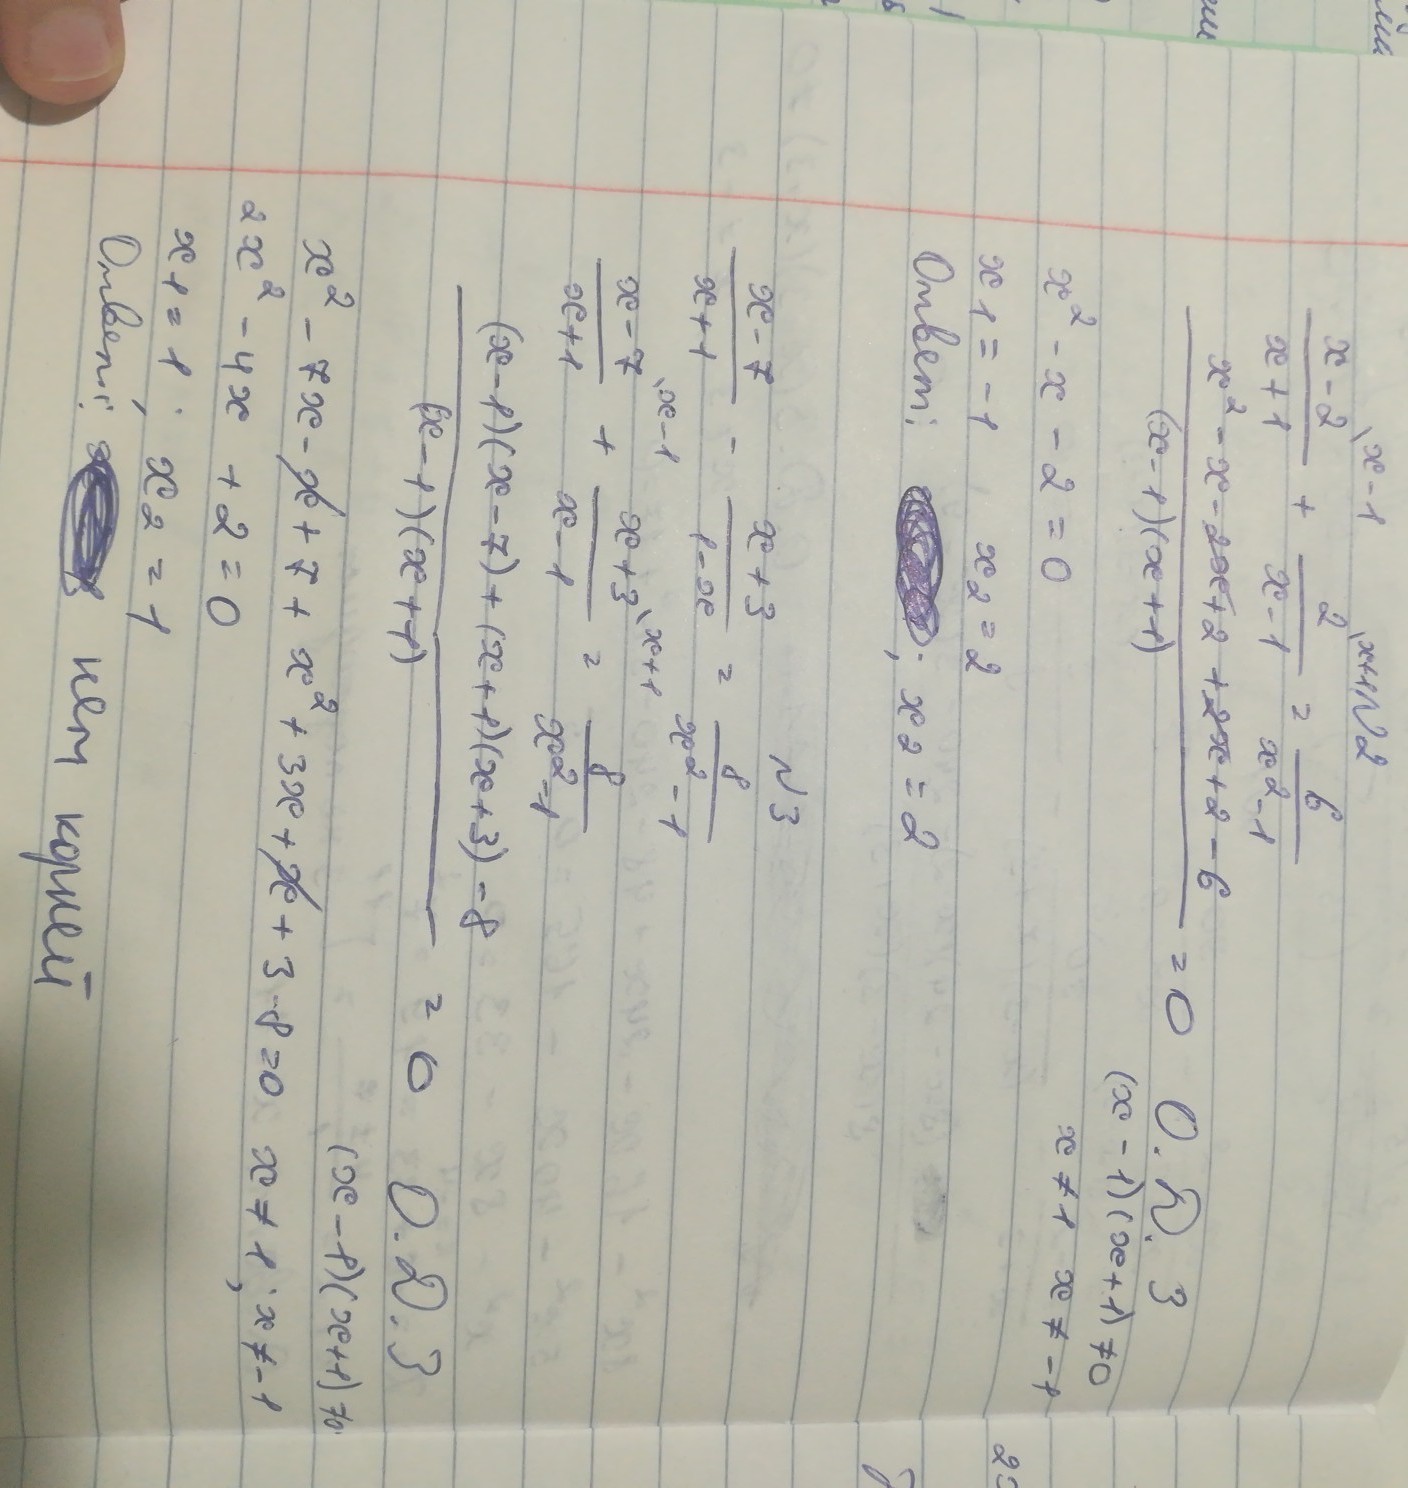 N2
x-2/x+1 \x-1 + 2/x-1 \x+1 = 6/x²-1
x²-x-2x+2+2x+2-6/(x-1)(x+1) = 0 О.Д.З
(x-1)(x+1)≠0
x²-x-2=0 x≠1 x≠-1
x1=-1 x2=2
Ответ: ; x2=2
N3
x-7/x+1 - x+3/1-x = 8/x²-1
x-7/x+1 \x-1 + x+3/x-1 \x+1 = 8/x²-1
(x-1)(x-7)+(x+1)(x+3)-8/(x-1)(x+1) = 0 О.Д.З
(x-1)(x+1)≠0
x²-7x-x+7+x²+3x+x+3-8=0 x≠1; x≠-1
2x²-4x+2=0
x1=1; x2=1
Ответ: нет корней